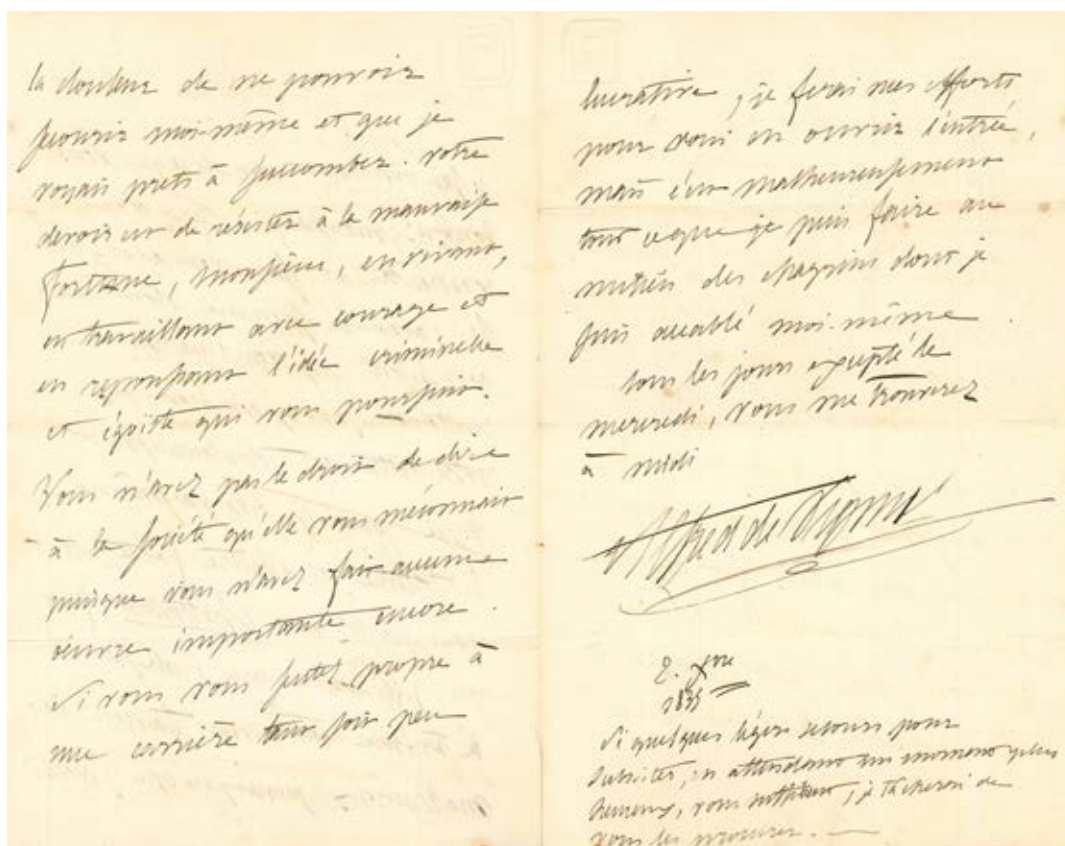 la douleur de ne pouvoir
secourir moi-même et que je
voyais prêts à succomber. votre
devoir est de résister à la mauvaise
fortune, Monsieur, en vivant,
en travaillant avec courage et
en repoussant l'idée criminelle
et égoïste qui vous poursuit.
Vous n'avez pas le droit de dire
à la société qu'elle vous méconnaît
puisque vous n'avez fait aucune
œuvre importante encore.
Si vous vous sentez propre à
une carrière tant soit peu
lucrative, je ferai mes efforts
pour vous en ouvrir l'entrée,
mais c'est malheureusement
tout ce que je puis faire au
milieu des chagrins dont je
suis accablé moi-même.
tous les jours excepté le
mercredi, vous me trouverez
à midi
Alfred de Vigny
2. Xbre
1835
Si quelques légers secours pour
subsister, en attendant un moment plus
heureux, vous suffisent, je tâcherai de
vous les procurer. —